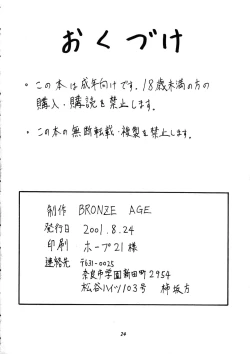 おくづけ
。この本は成年向けです。18歳未満の方の
購入・購読を禁止します。
・この本の無断転載・複製を禁止します。
制作 BRONZE AGE
発行日 2001.8.24
印刷 ホープ21様
連絡先 〒631-0025
奈良市学園新田町2954
松谷ハイツ103号 柿坂方
24